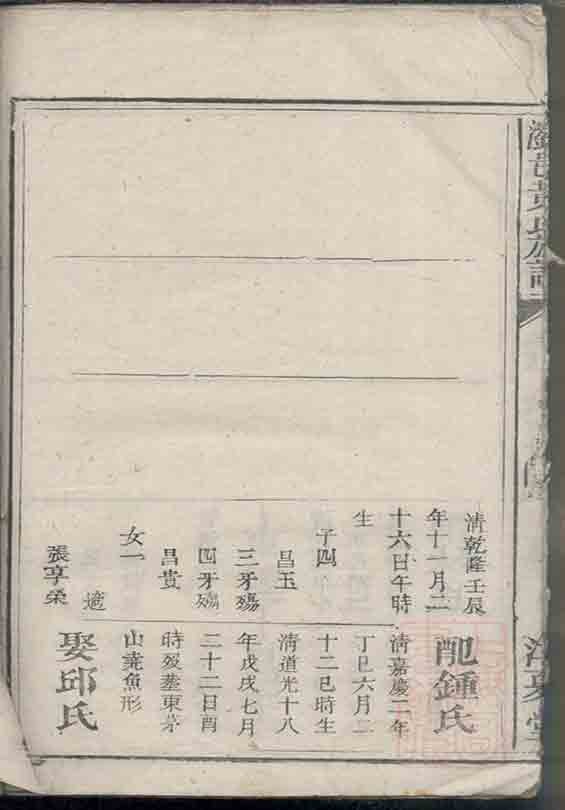 瀏邑黃氏族譜
江夏堂
清乾隆壬辰
年十一月二
十六日午時
生
子四
昌玉
三牙殤
四牙殤
昌貴
女一
適
張享榮
配鍾氏
清嘉慶二年
丁巳六月二
十二巳時生
清道光十八
年戊戌七月
二十二日酉
時歿葬東茅
山堯魚形
娶邱氏